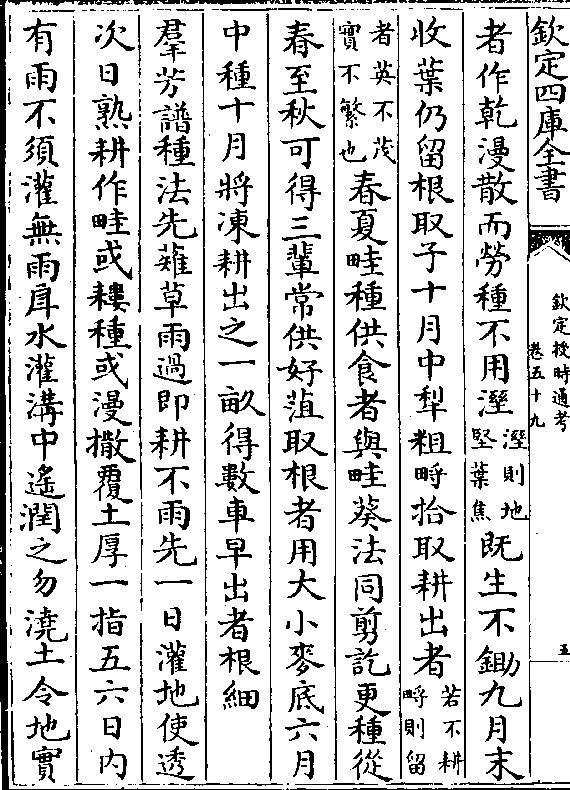 欽定四庫全書
欽定授時通考
卷五十九
五
者作乾漫散而勞種不用溼溼則地堅葉焦既生不鋤九月末
收葉仍留根取子十月中犁粗畤拾取耕出者若不耕畤則留
者英不茂實不繁也春夏畦種供食者與畦葵法同剪訖更種從
春至秋可得三輩常供好菹取根者用大小麥底六月
中種十月將凍耕出之一畝得數車早出者根細
羣芳譜種法先薙草雨過即耕不雨先一日灌地使透
次日熟耕作畦或耬種或漫撒覆土厚一指五六日內
有雨不須灌無雨戽水灌溝中遙潤之勿澆土令地實